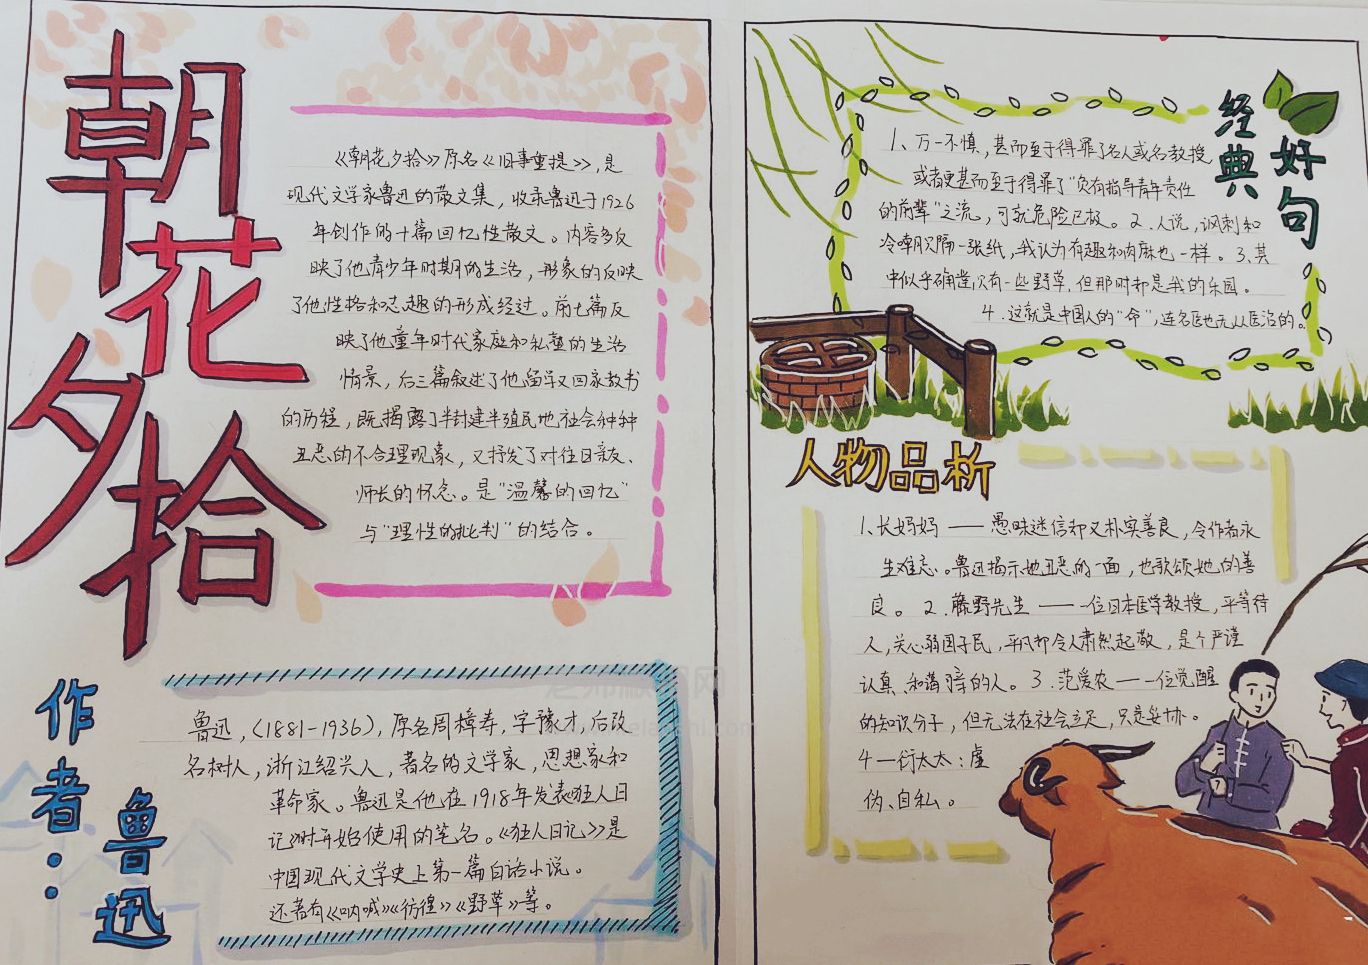 朝花夕拾
《朝花夕拾》原名《旧事重提》,是
现代文学家鲁迅的散文集,收录鲁迅于1926
年创作的十篇回忆性散文。内容多反
映了他青少年时期的生活,形象的反映
了他性格和志趣的形成经过。前七篇反
映了他童年时代家庭和私塾的生活
情景,后三篇叙述了他留学又回家教书
的历程,既揭露了半封建半殖民地社会种种
丑恶的不合理现象,又抒发了对往日亲友、
师长的怀念。是“温馨的回忆”
与“理性的批判”的结合。
作者:鲁迅
鲁迅,(1881-1936),原名周樟寿,字豫才,后改
名树人,浙江绍兴人,著名的文学家,思想家和
革命家。鲁迅是他在1918年发表《狂人日
记》时开始使用的笔名。《狂人日记》是
中国现代文学史上第一篇白话小说。
还著有《呐喊》《彷徨》《野草》等。
经典好句
1、万一不慎,甚而至于得罪了名人或名教授
或者更甚而至于得罪了“负有指导青年责任
的前辈”之流,可就危险已极。2.人说,讽刺和
冷嘲只隔一张纸,我认为有趣和肉麻也一样。3、其
中似乎确凿只有一些野草,但那时却是我的乐园。
4.这就是中国人的“命”,连名医也无从医治的。
人物品析
1、长妈妈——愚昧迷信却又朴实善良,令作者永
生难忘。鲁迅揭示她丑恶的一面,也歌颂她的善
良。2.藤野先生——一位日本医学教授,平等待
人,关心弱国子民,平凡却令人肃然起敬,是个严谨
认真、和蔼可亲的人。3.范爱农——一位觉醒
的知识分子,但无法在社会立足,只是妥协。
4—衍太太:虚
伪、自私。